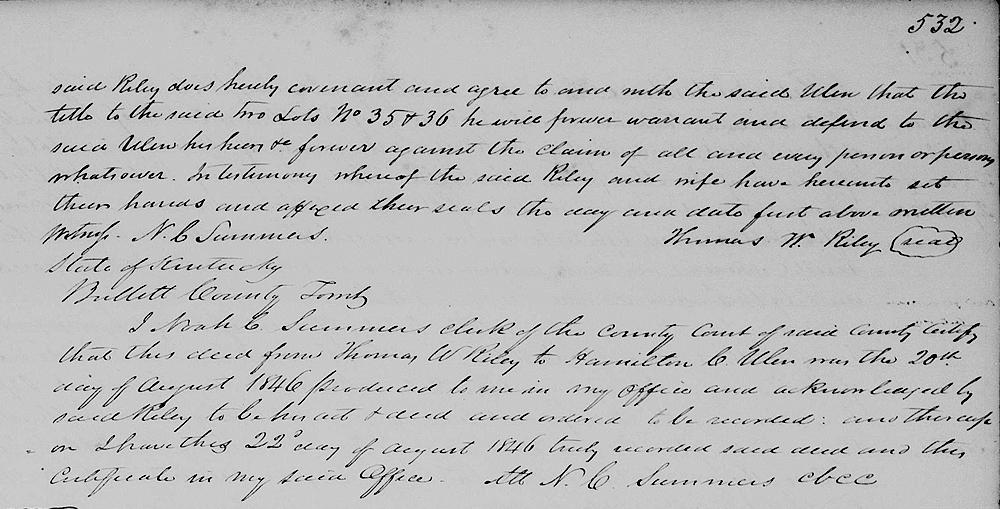 532
said Riley does hereby covenant and agree to and with the said Ulen that the
title to the said two Lots No 35 & 36 he will forever warrant and defend to the
said Ulen his heirs &c forever against the claim of all and every person or persons
whatsover. In testimony whereof the said Riley and wife have hereunto set
their hands and affixed their seals the day and date first above written
Witness. N. C Summers. Thomas W. Riley (seal)
State of Kentucky
Bullett County Towit
I Noah C. Summers clerk of the county Court of said County Certify
that this deed from Thomas W Riley to Hamilton C. Ulen was the 20th
day of August 1846 produced to me in my office and acknowledged by
said Riley to be his act & deed and ordered to be recorded: and thereup
on I have this 22d day of August 1846 truly recorded said deed and this
Certificate in my said Office. Att N. C. Summers cbcc